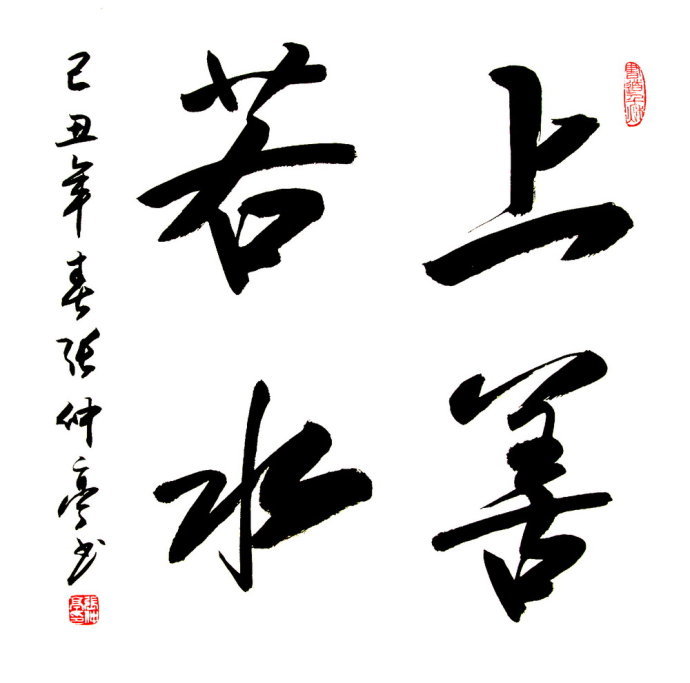 上善
若水
己丑年春张仲亭书